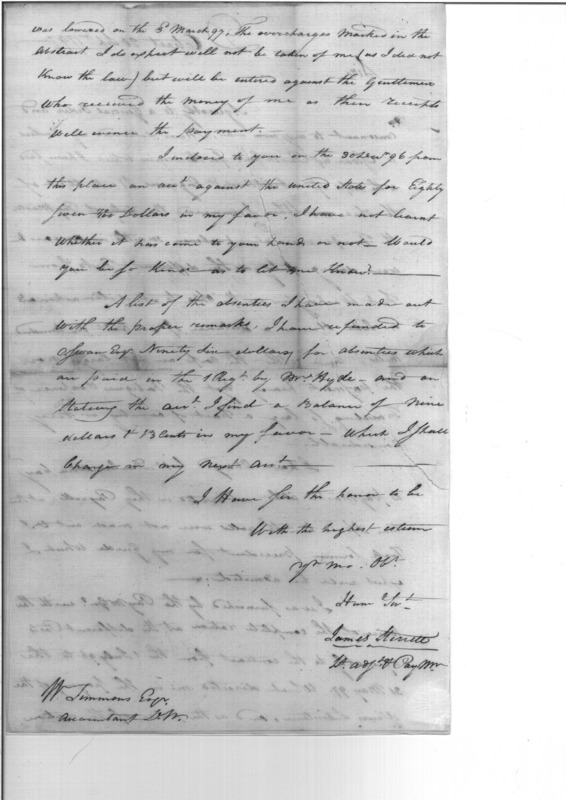 was lowered on the 3d March 97, The overcharges marked in the
abstract I do expect will not be taken of me (as I did not
Know the law) but will be entered against the Gentlemen
who received the money of me as their receipts
Will evince the payment.
I inclosed to you on the 30 Decr 96 from
this place an acct against the united States for Eighty
Seven Dollars in my favor, I have not learnt
Whether it has come to your hands or not — Would
you be so Kind as to let me Know? —
A list of the absentees I have made out
With the proper remarks, I have refunded to
Swan Esq Ninety Six dollars for absentees which
are paid in the 1 Regt by Mr Hyde — and on
Stateing the acct I find a Balance of Nine
dollars & 13 Cents in my favor — Which I shall
Charge in my next acct —
I Have Sir the honor to be
With the highest esteem
Yr mo. Obt
Hum Svt
James Sterrett
Lt adjt & Pay Mr
W Simmons Esqr
accountant D.W.